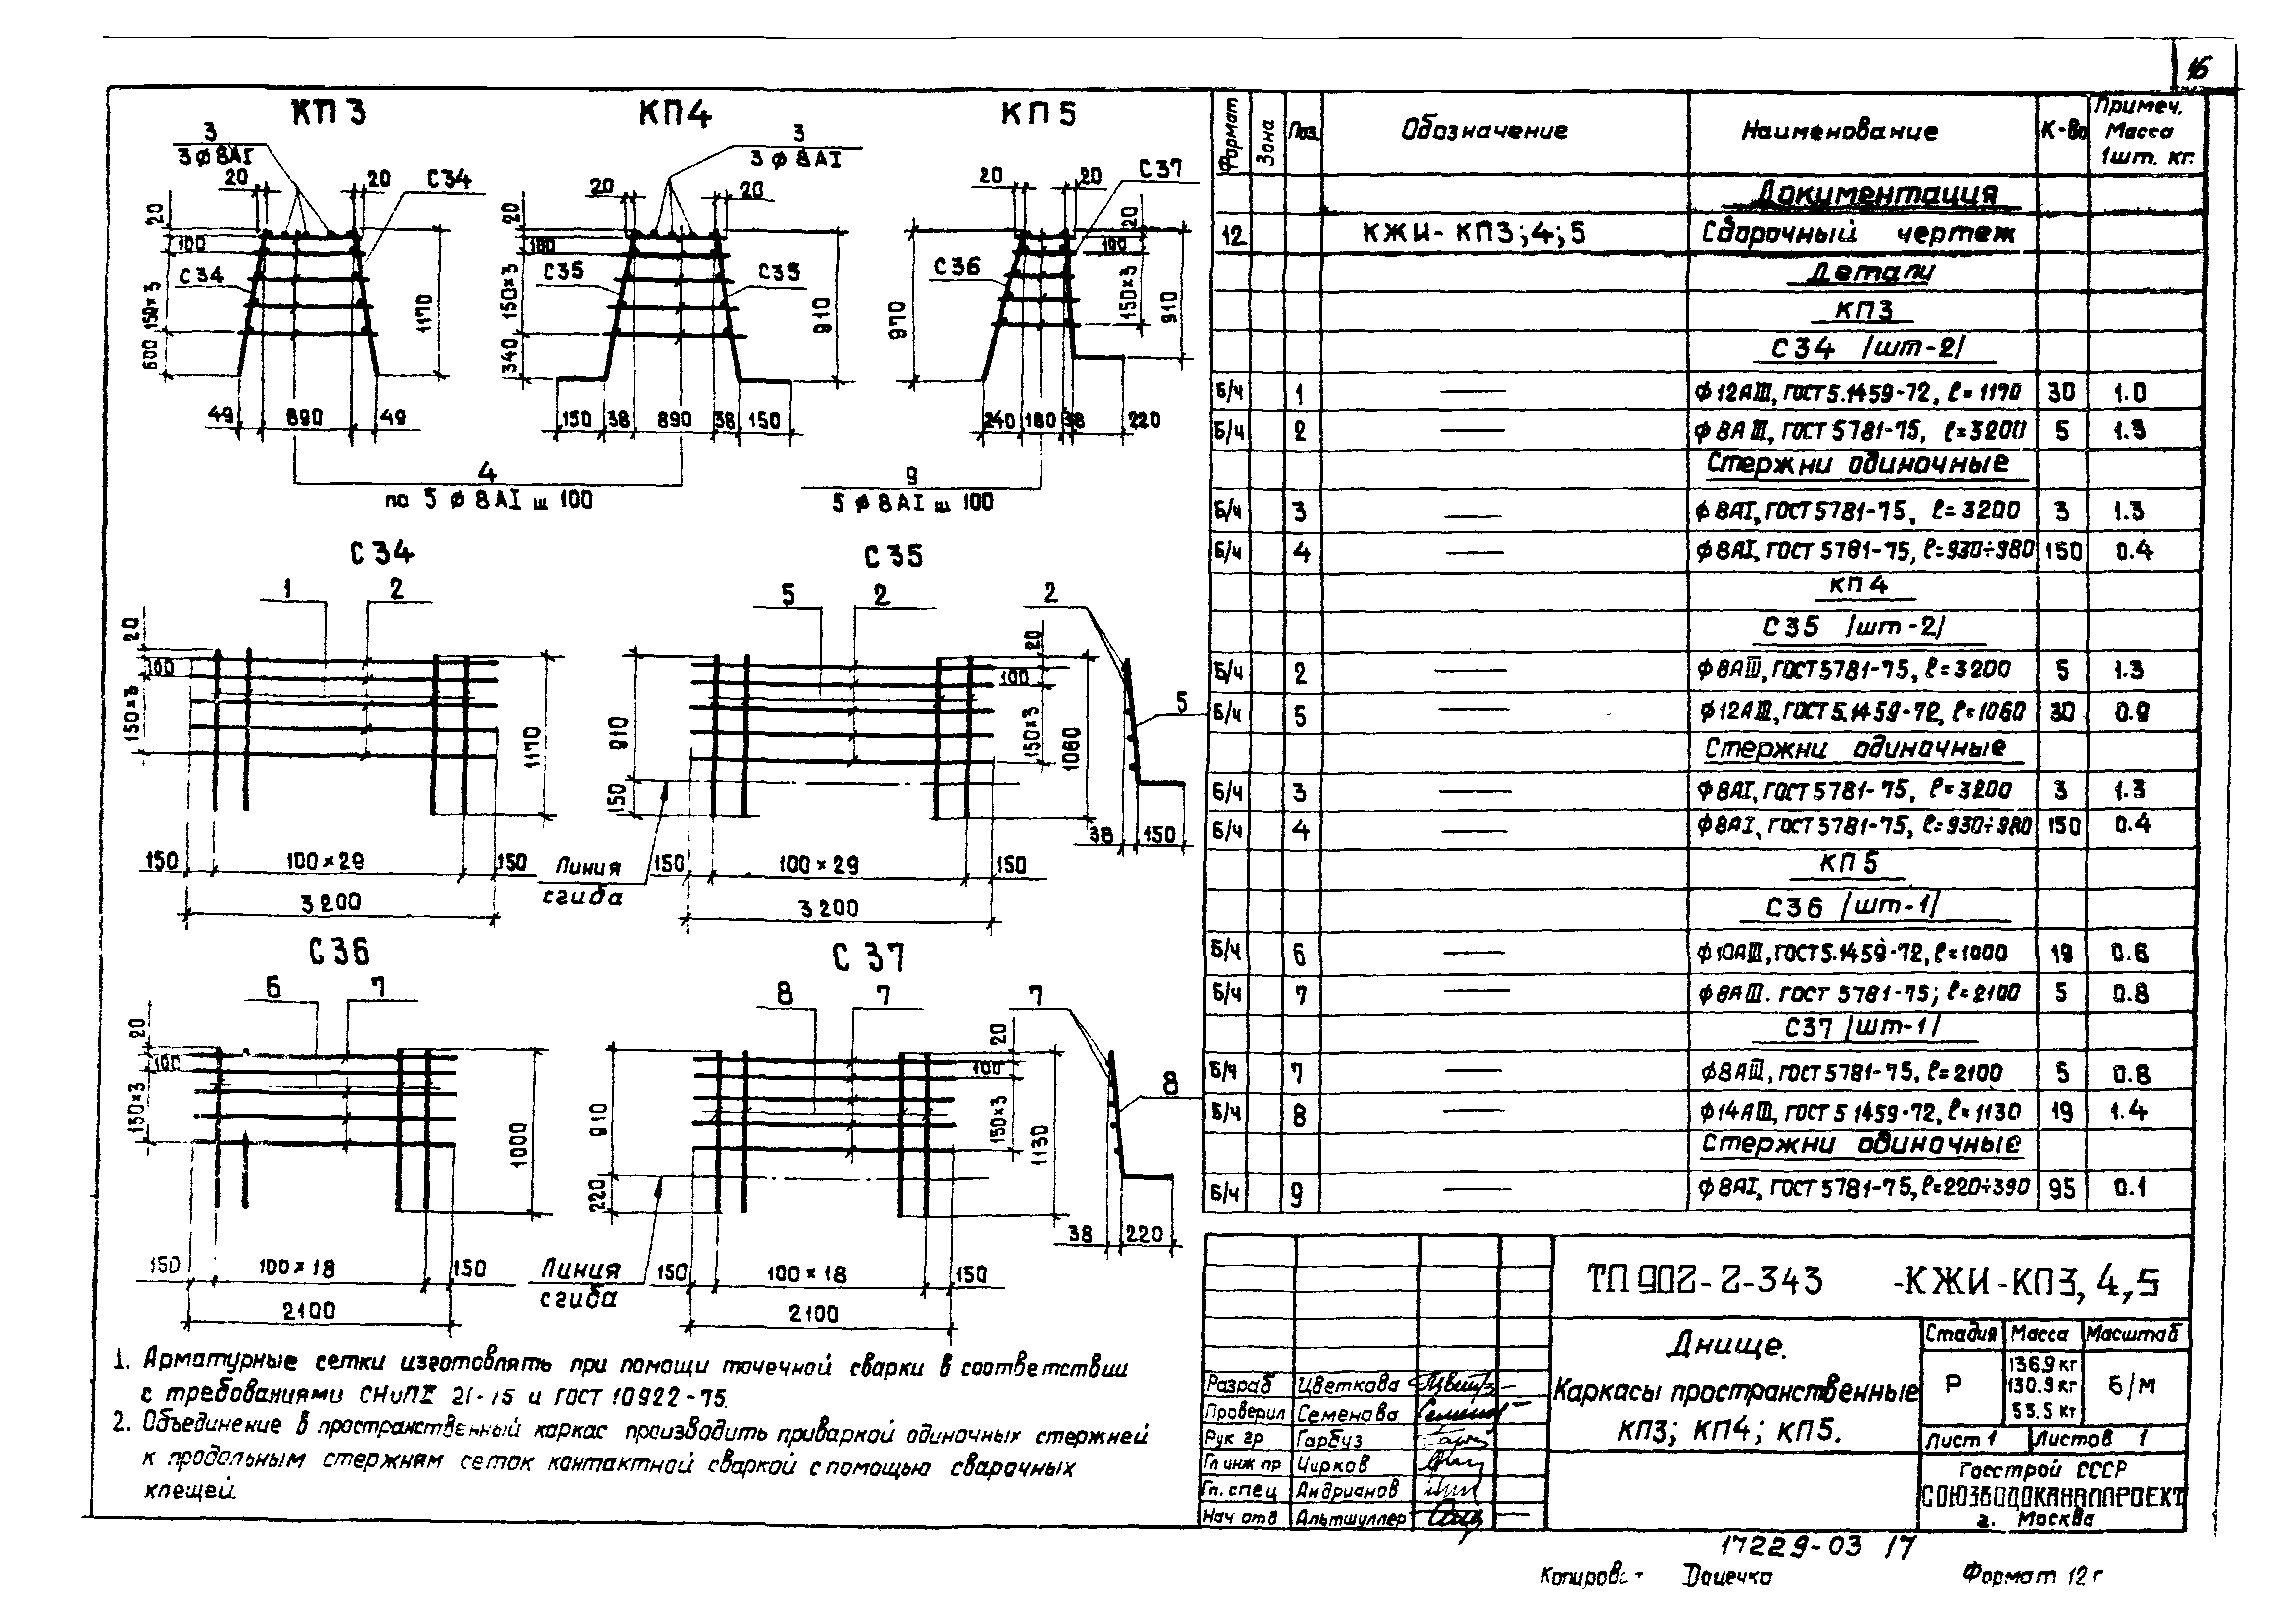 16
КП 3
КП 4
КП 5
3
3 ф 8АI
20
20
С 34
20
100
С 34
150×3
600
1170
49
890
49
3
3 ф 8АI
20
20
20
100
С35
С35
150×3
340
910
150
38
890
38
150
20
20
С 37
20
100
С 36
150×3
970
910
240
180
38
220
4
по 5 ф 8АI ш 100
9
5 ф 8АI ш 100
С 34
1
2
20
100
150×3
1170
150
100×29
150
3200
С 35
5
2
2
20
100
150×3
910
150
1060
5
Линия
сгиба
150
100×29
150
3200
38
150
С 36
6
7
20
100
150×3
1000
150
100×18
150
2100
С 37
8
7
7
20
100
150×3
910
220
1130
8
Линия
сгиба
150
100×18
150
2100
38
220
1. Арматурные сетки изготовлять при помощи точечной сварки в соответствии
с требованиями СНиП 21-75 и ГОСТ 10922-75.
2. Объединение в пространственный каркас производить приваркой одиночных стержней
к продольным стержням сеток контактной сваркой с помощью сварочных
клещей.
Формат Зона Поз. Обозначение Наименование К-во Примеч. Масса 1шт. кг.
Документация
12 КЖИ- КП3;4;5 Сборочный чертеж
Детали
КП3
С34 /шт-2/
Б/ч 1 — ф12АIII, ГОСТ 5.1459-72, ℓ=1170 30 1.0
Б/ч 2 — ф8АIII, ГОСТ 5781-75, ℓ=3200 5 1.3
Стержни одиночные
Б/ч 3 — ф8АI, ГОСТ 5781-75, ℓ=3200 3 1.3
Б/ч 4 — ф8АI, ГОСТ 5781-75, ℓ=930÷980 150 0.4
КП4
С35 /шт-2/
Б/ч 2 — ф8АIII, ГОСТ 5781-75, ℓ=3200 5 1.3
Б/ч 5 — ф12АIII, ГОСТ 5.1459-72, ℓ=1060 30 0.9
Стержни одиночные
Б/ч 3 — ф8АI, ГОСТ 5781-75, ℓ=3200 3 1.3
Б/ч 4 — ф8АI, ГОСТ 5781-75, ℓ=930÷980 150 0.4
КП5
С36 /шт-1/
Б/ч 6 — ф10АIII, ГОСТ 5.1459-72, ℓ=1000 19 0.6
Б/ч 7 — ф8АIII. ГОСТ 5781-75; ℓ=2100 5 0.8
С37 /шт-1/
Б/ч 7 — ф8АIII, ГОСТ 5781-75, ℓ=2100 5 0.8
Б/ч 8 — ф14АIII, ГОСТ 5 1459-72, ℓ=1130 19 1.4
Стержни одиночные
Б/ч 9 — ф8АI, ГОСТ 5781-75, ℓ=220÷390 95 0.1
ТП 902-2-343 -КЖИ-КП3, 4, 5
Днище.
Каркасы пространственные
КП3; КП4; КП5.
Стадия Масса Масштаб
Р
136.9 кг
130.9 кг
55.5 кг
Б/М
Лист 1 Листов 1
Госстрой СССР
СОЮЗВОДОКАНАЛПРОЕКТ
г. Москва
Разраб Цветкова
Проверил Семенова
Рук гр Гарбуз
Гл инж пр Чирков
Гл. спец Андрианов
Нач отд Альтшуллер
17229-03 17
Формат 12г